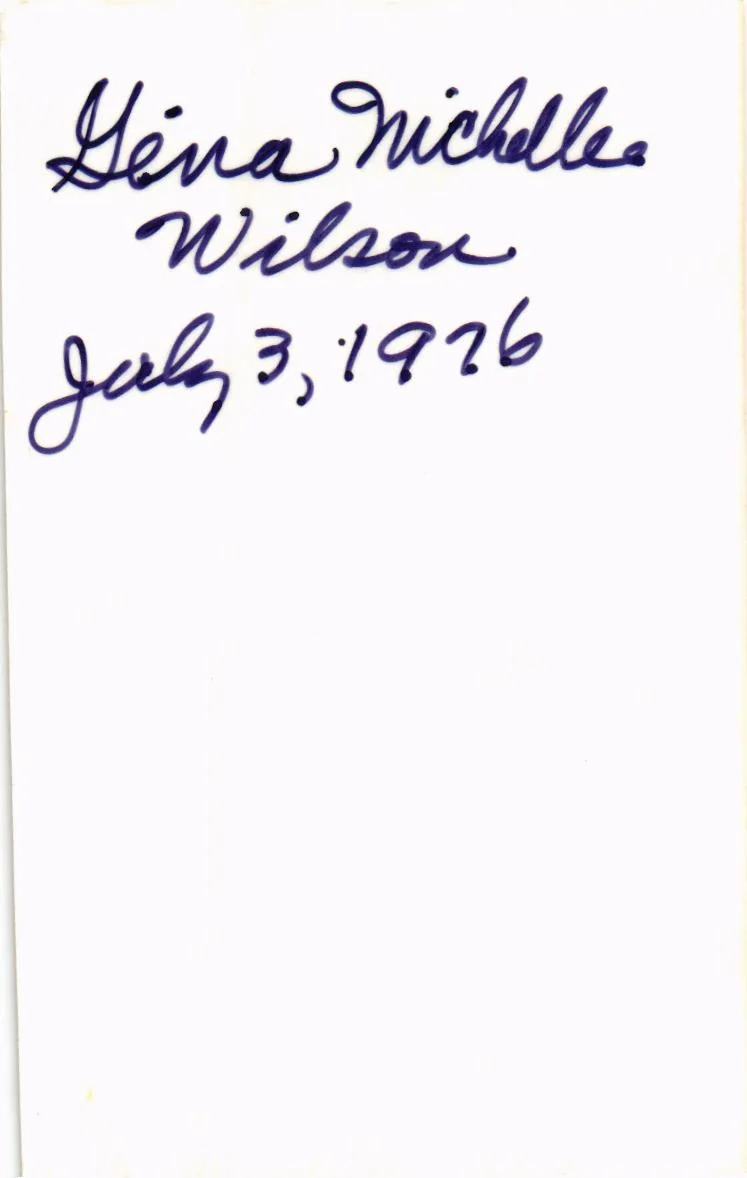 Gena Michelle
Wilson
July 3, 1976